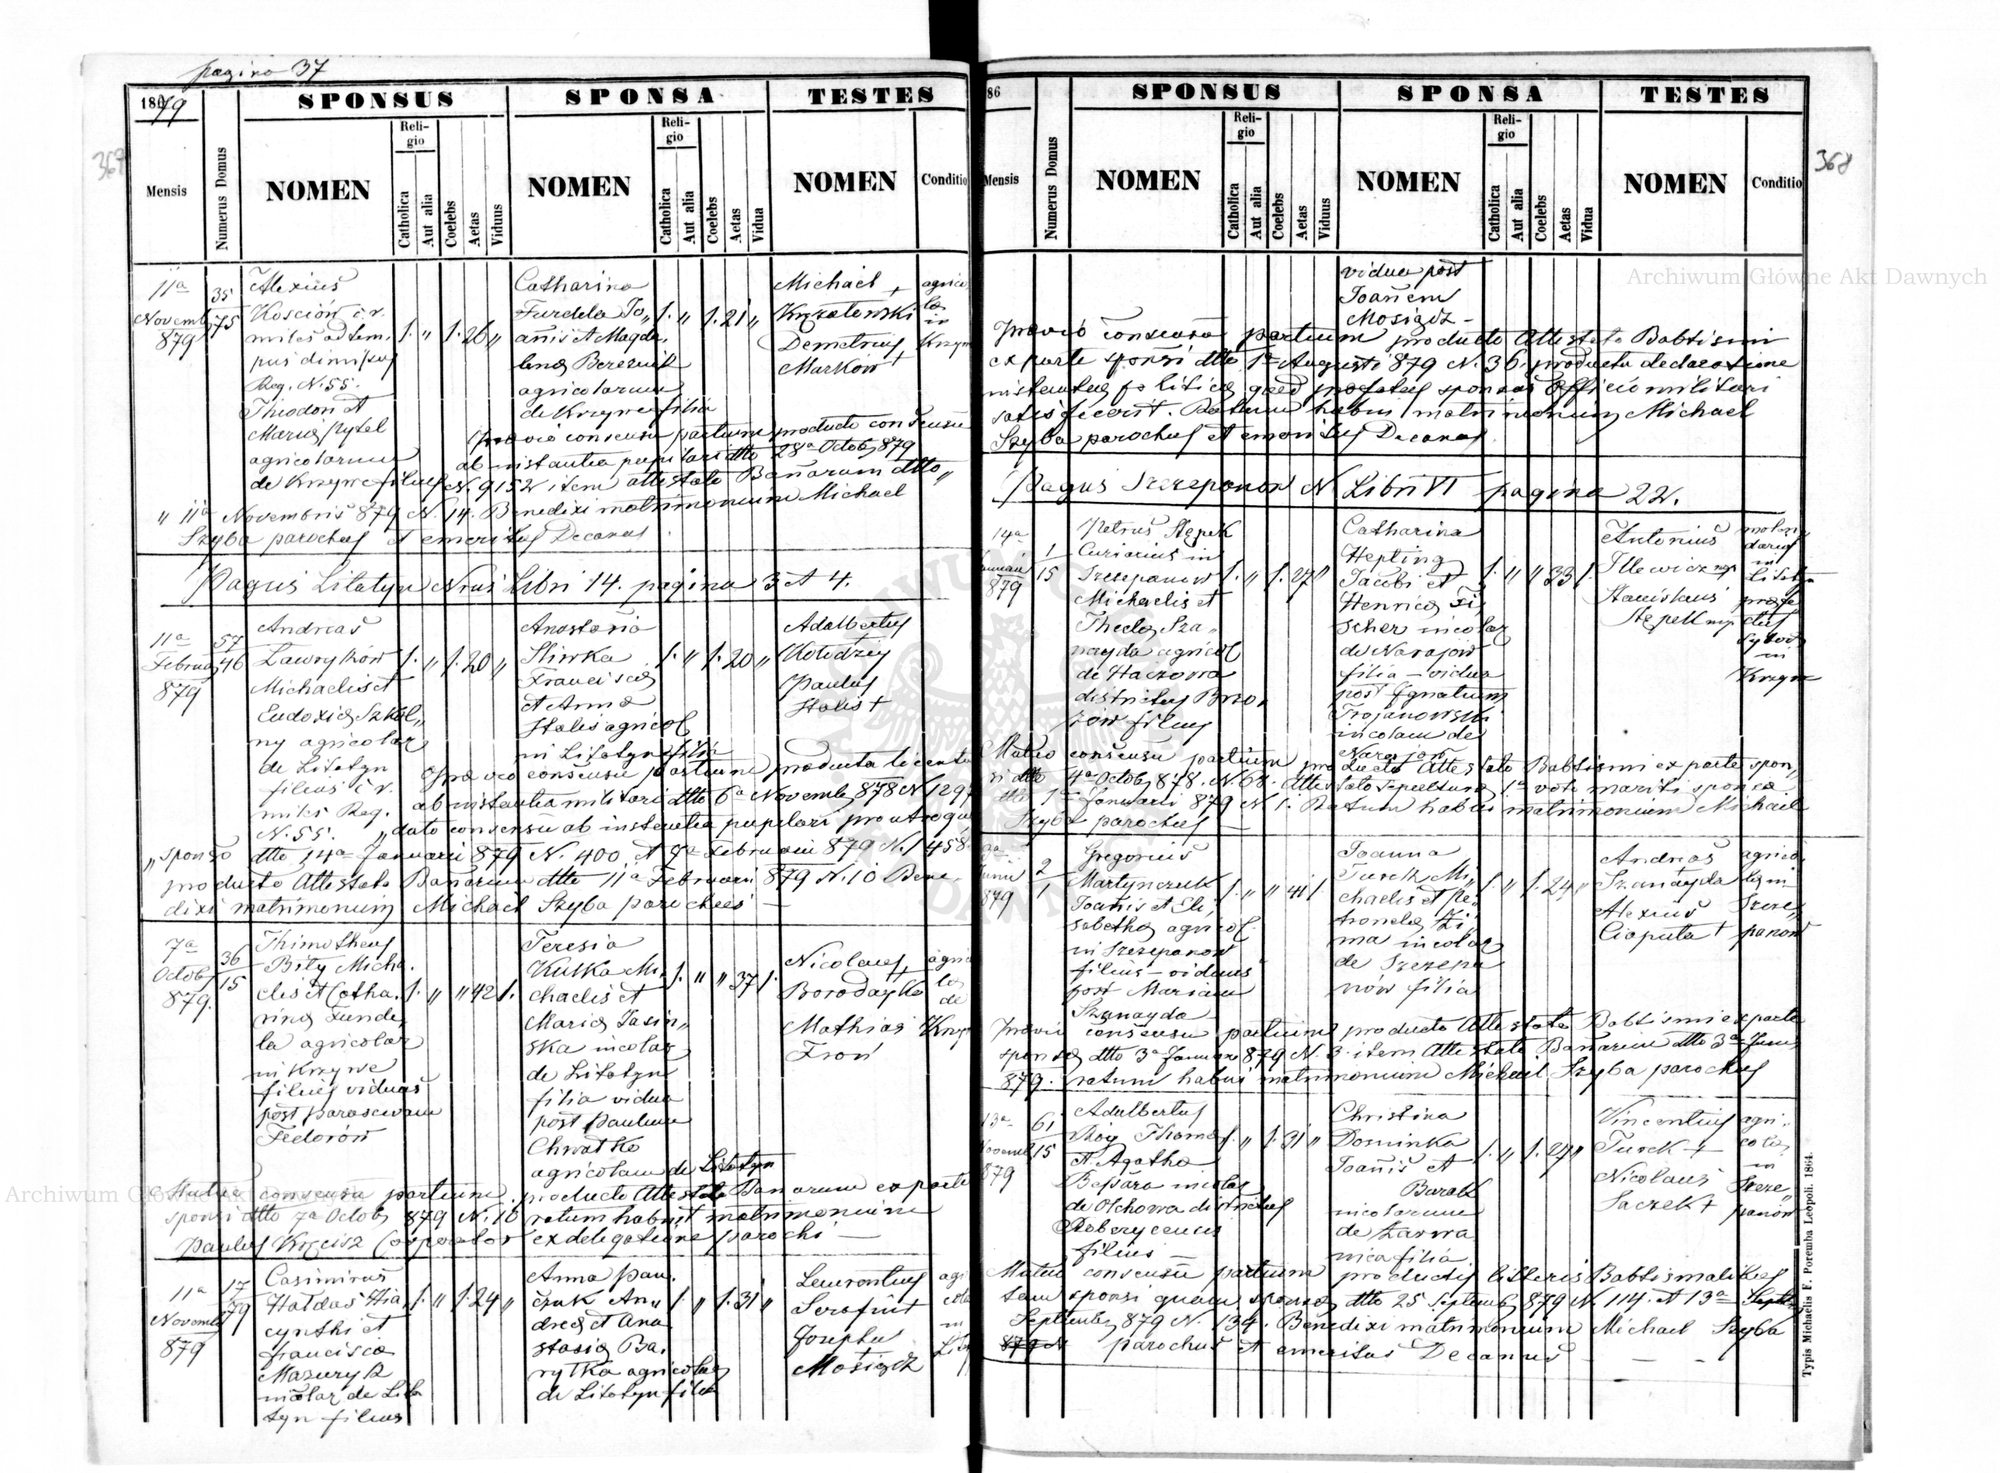 pagina 37
1879
SPONSUS
SPONSA
TESTES
Mensis
Numerus Domus
NOMEN
Religio
Catholica
Aut alia
Coelebs
Aetas
Viduus
NOMEN
Religio
Catholica
Aut alia
Coelebs
Aetas
Vidua
NOMEN
Conditio
11a
Novemb
879
35
75
Alexius
Kościów c.r.
miles ad tem,
pus dimissus
Reg. N. 55.
Theodori et
Mariæ Rytel
agricolarum
de Krzywe filius
1. " 1. 26 "
Catharina
Furdela Jo„
annis et Magda„
lena Bereznik
agricolarum
de Krzywe filia
1. " 1. 21 "
Michael +
Krzatowski
Demetrius
Marków +
agrico
læ
in
Krzyw
Prævio consensu partium producto consensu
ab instantia pupilari dtto 28a Octob 879
N. 9152 item attestato Bañarum dtto „
" 11a Novembris 879 N. 14. Benedixi matrimonium Michael
Szyba parochus et emeritus Decanus.
Pagus Litatyn Nrus Libri 14. pagina 3 et 4.
11a
Februa
879
57
46
Andreas
Lawryków
Michaelis et
Eudoxiæ Szkol„
ny agricolar
de Litatyn
filius c.r.
miles Reg.
N. 55.
1. " 1. 20 "
Anastasia
Sliwka
Francisci
et Anna
Stalis agricol
in Litatyn filia
1. " 1. 20 "
Adalbertus
Kołodziej
Paulus
Stalis +
Prævio consensu partium producta licentia
ab instantia militari dtto 6a Novemb 878 N 1297
„dato consensu ab instantia pupilari pro utroque
„sponso dtto 14a Januarii 879 N. 400. et 8a Februarii 879 N. 1458.
producto Attestato Bañarum dtto 11a Februarii 879 N. 10 Bene„
dixi matrimonium Michael Szyba parochus —
7a
Octob
879.
36
15
Thimotheus
Biły Micha„
elis et Catha„
rinæ Furde„
la agricolar
in Krzywe
filius viduus
post Parascevam
Fedorów
1. " " 42 1.
Teresia
Kulka Mi„
chaelis et
Mariæ Jasin„
ska incolar
de Litatyn
filia vidua
post Paulum
Chwałko
agricolam de Litatyn
1. " " 37 1.
Nicolaus +
Borodayko
Mathias
Froń
agrico
læ
de
Krzyw
Mutuo consensu partium producto Attestato Bañarum ex parte
sponsi dtto 7a Octob 879 N. 10 ratum habuit matrimonium
Paulus Krzcisz Cooperator ex delegatione parochi —
11a
Novemb
879
17
79
Casimirus
Hałdas Hia„
cynthi et
Francisca
Mazuryk
incolar de Lita
tyn filius
1. " 1. 24 "
Anna Pan„
czuk An„
dreæ et Ana
stasiæ Ba„
rytka agricolar
de Litatyn filia
1. " 1. 31 "
Laurentius
Serafin +
Josephus
Mosiądz
agri
colæ
in
Lita
186
SPONSUS
SPONSA
TESTES
368
Mensis
Numerus Domus
NOMEN
Religio
Catholica
Aut alia
Coelebs
Aetas
Viduus
NOMEN
Religio
Catholica
Aut alia
Coelebs
Aetas
Vidua
NOMEN
Conditio
vidua post
Joañem
Mosiądz –
Prævio consensu partium producto Attestato Babtismi
ex parte sponsi dtto 1a Augusti 879 N. 36. producta declaratione
instantiæ politicæ quod præfatus sponsus officio militari
satisfecerit. Ratum habui matrimonium Michael
Szyba parochus et emeritus Decanus.
Pagus Szczepanow N. Libri VI pagina 22.
14a
Januari
879
1
15
Petrus Stępek
Curiarius in
Szczepanow
Michaelis et
Thecla Sza„
nayda agricol
de Haczowa
districtus Brzo„
zów filius
1. " 1. 27 "
Catharina
Hepting
Jacobi et
Henrica Fi„
scher incolar
de Narajow
filia – vidua
post Ignatium
Trojanowski
incolam de
Narajow
1. " " 33 1.
Antonius
Ilewicz mp
Stanislaus
Stępek mp
molen„
darius
in
Litatyn
præfe
ctus
sylvar
in
Krzyw
Mutuo consensu partium producto Attestato Babtismi ex parte spon„
si dtto 4a Octob 878. N. 68. Attestato sepulturæ 1a voto mariti sponsæ
dtto 1a Januarii 879 N. 1. Ratum habui matrimonium Michael
Szyba parochus —
Junii
879
2
1
Gregorius
Martynczuk
Joañis et Eli„
sabetha agricol.
in Szczepanow
filius – viduus
post Mariam
Szanayda –
1. " " 41 1
Joanna
Turek Mi„
chaelis et Pe„
tronela Zi„
ma incolar
de Szczepa
now filia
1. " 1. 24 "
Andreas
Szanayda
Alexius
Ciaputa +
agrico„
læ in
Szcze„
panow
Prævio consensu partium producto Attestato Babtismi ex parte
sponsæ dtto 3a Januari 879 N. 3. item Attestato Bañarum dtto 3a Junii
879. ratum habui matrimonium Michael Szyba parochus
13a
Novemb
879
61
15
Adalbertus
Thomæ
et Agatha
Bassara incolar
de Olchowa districtus
Robczycensis
filius —
1. " 1. 31 "
Christina
Dominka
Joañis et
Barak
incolarum
de Zarwa
nica filia
1. " 1. 27 "
Vincentius
Turek +
Nicolaus
Saczek +
agri„
colæ
in
Szcze„
panow
Mutuo consensu partium productis litteris Babtismalibus
tam sponsi quam sponsæ dtto 25 Septemb 879 N. 114. et 13a Septb
Septembr 879 N. 134. Benedixi matrimonium Michael Szyba
879 N parochus et emeritus Decanus — — —
Typis Michaelis F. Poremba Leopoli. 1864.
Archiwum Główne Akt Dawnych
Archiwum Główne Akt Dawnych